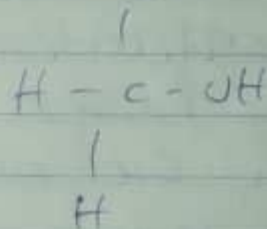 |
H - C - OH
|
H